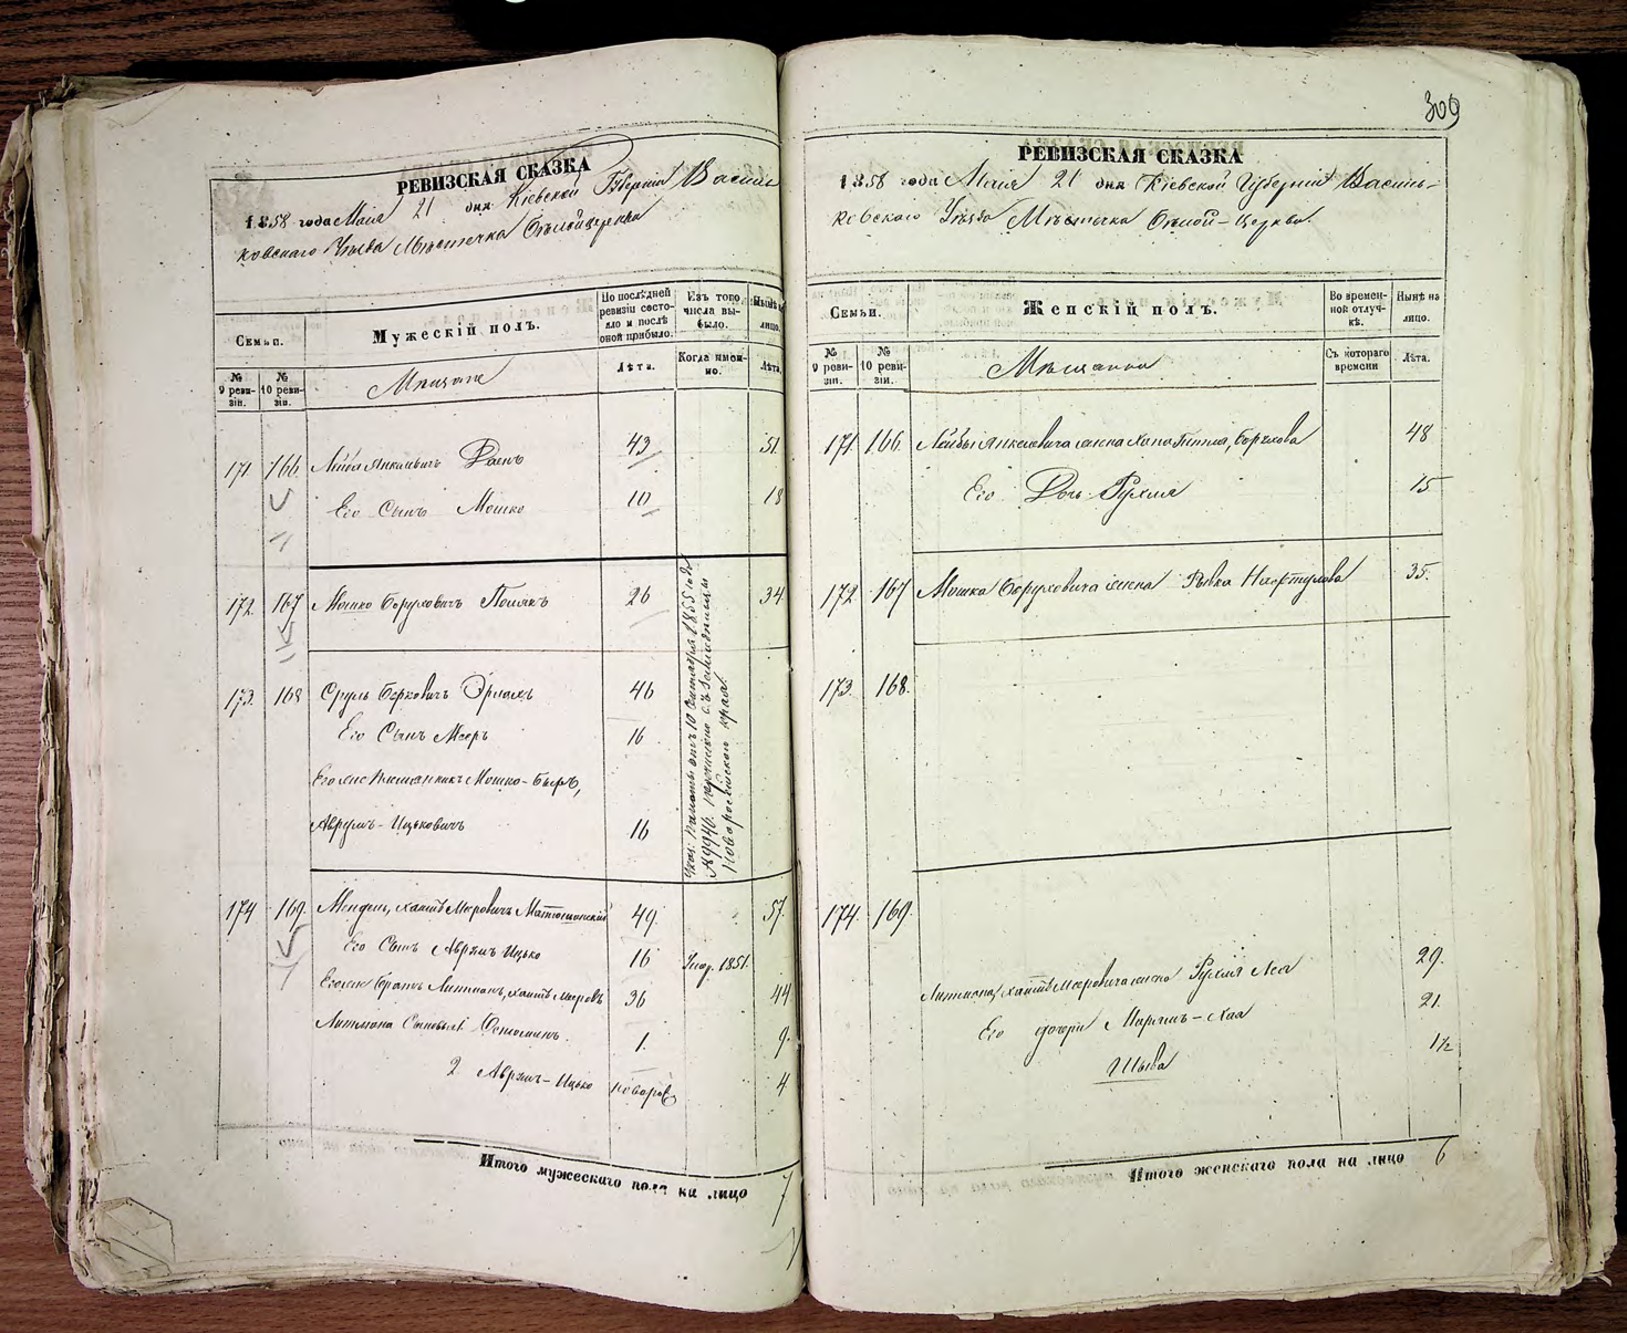 309
РЕВИЗСКАЯ СКАЗКА
1858 года Маія 21 дня Кіевской Губерніи Василь
ковскаго Уѣзда Мѣстечка Бѣлойцеркви
Семьи.
Мужескій полъ.
По послѣдней ревизіи состояло и послѣ оной прибыло.
Изъ того числа выбыло.
Нынѣ на лицо.
№ 9 ревизіи.
№ 10 ревизіи.
Мѣщане
Лѣта.
Когда именно.
Лѣта.
171 166 Лейба Янкелевичъ 43 51
Его Сынъ Мошко 10 18
172 167 Мошко Борухович Полякъ 26 34
173 168 Сруль Берковичъ 46
Его Сынъ Мееръ 16
Его же Племянникъ Мошко-Беръ,
Аврумъ-Ицьковичъ 16
Указ: Палаты отъ 10 Октября 1855 года
№ 9946. перечислено съ Земледѣльцы
Новороссійскаго края.
174 169 Мендель, хаимъ Мееровичъ 49. 57.
Его Сынъ Аврумъ Ицько 16 Умер. 1851.
Его же Братъ Литманъ, хаимъ Мееровъ 36 44
Литмана Сыновья 1. 9.
2 Аврумъ-Ицько новорож 4
Итого мужескаго пола на лицо 7
РЕВИЗСКАЯ СКАЗКА
1858 года Маія 21 дня Кіевской Губерніи Василь-
ковскаго Уѣзда Мѣстечка Бѣлой-Церкви.
Семьи.
Женскій полъ.
Во временной отлучкѣ.
Нынѣ на лицо.
№ 9 ревизіи.
№ 10 ревизіи.
Мѣщанки
Съ котораго времени
Лѣта.
171. 166. Лейбы Янкелевича жена Хана 48
Его Дочь Рухля 15
172 167 Мошка Боруховича жена Рывка 35.
173. 168.
174. 169.
Литмана, хаимъ Мееровича жена Рухля Лея 29.
Его дочери Марьямъ-Хая 21.
Шыва 1½
Итого женскаго пола на лицо 6